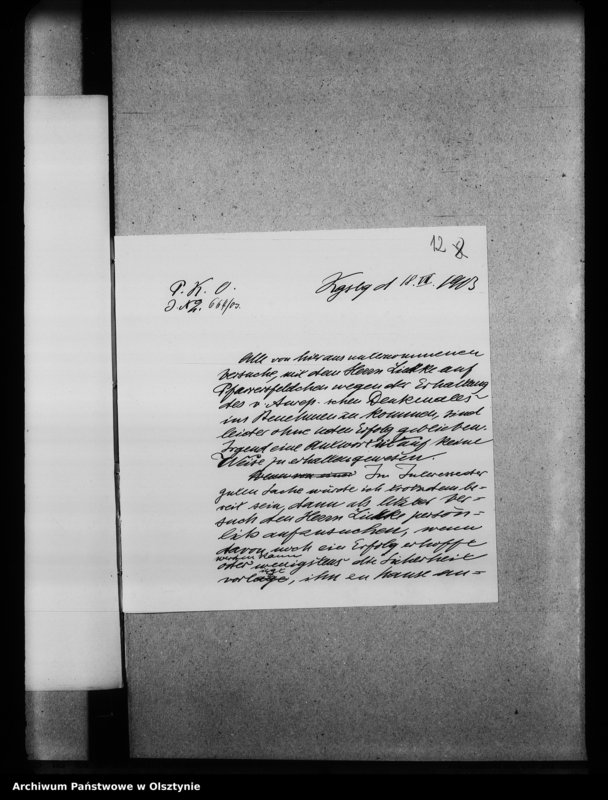 12 8
P. K. O.
J. № 2. 668/03.
Kgsbg d 18. VII. 1903
Alle von hier aus unternommenen
Versuche, mit dem Herrn Lukke auf
Pfarrersfeldchen wegen der Erhaltung
des v. Anrep'schen Denkmales
ins Benehmen zu kommen, sind
leider ohne jeden Erfolg geblieben.
Irgend eine Antwort ist auf keine
Weise zu erhalten gewesen.
Im Interesse der
guten Sache würde ich trotzdem be-
reit sein, dann als letzter Ver-
such den Herrn Lukke persön-
lich aufzusuchen, wenn
davon noch ein Erfolg erhofft
werden kann
oder wenigstens die Sicherheit
vorläge, ihn zu Hause an-
Archiwum Państwowe w Olsztynie